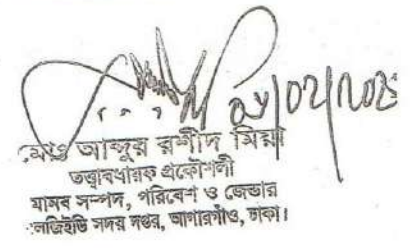 ০৮/০২/২০২
মোঃ আব্দুর রশীদ মিয়া
তত্ত্বাবধায়ক প্রকৌশলী
মানব সম্পদ, পরিবেশ ও জেন্ডার
এলজিইডি সদর দপ্তর, আগারগাঁও, ঢাকা।